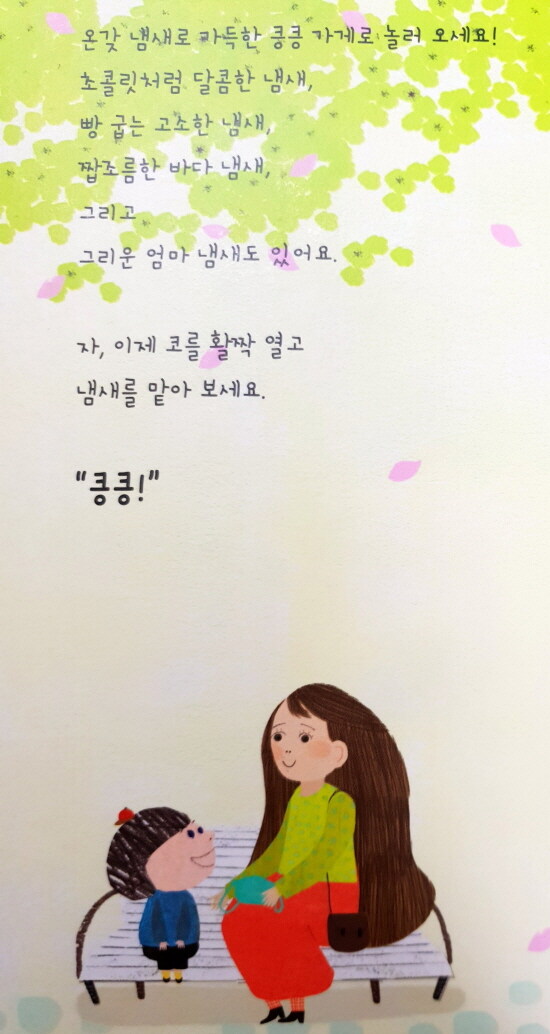 온갖 냄새로 가득한 킁킁 가게로 놀러 오세요!
초콜릿처럼 달콤한 냄새,
빵 굽는 고소한 냄새,
짭조름한 바다 냄새,
그리고
그리운 엄마 냄새도 있어요.
자, 이제 코를 활짝 열고
냄새를 맡아 보세요.
"킁킁!"